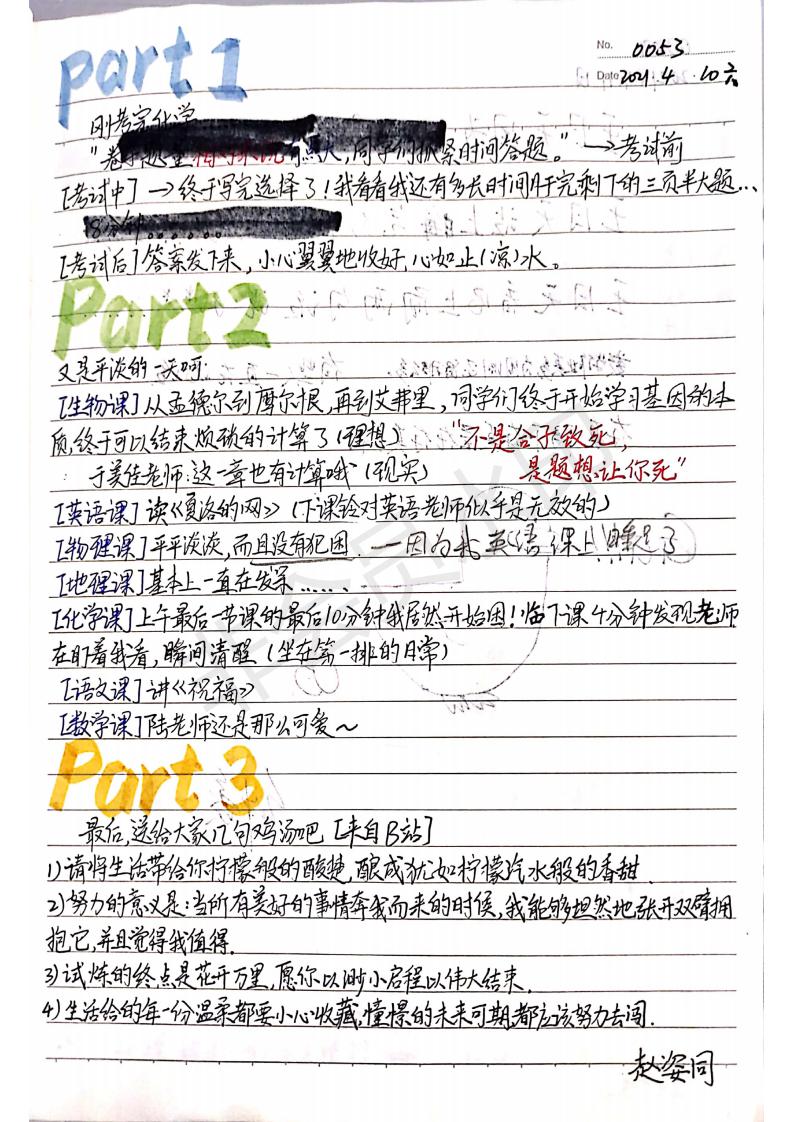 Part 1
No. 0053
Date 2021.4.10 六
刚考完化学
"卷子题量 点大,同学们抓紧时间答题。" →考试前
[考试中]→终于写完选择了!我看看我还有多长时间用于完剩下的三页半大题…
18分钟……
[考试后]答案发下来,小心翼翼地收好,心如止(凉)水。
Part 2
又是平淡的一天呵:
[生物课]从孟德尔到摩尔根,再到艾弗里,同学们终于开始学习基因的本
质,终于可以结束烦琐的计算了(理想) "不是合子致死,
于美佳老师:这一章也有计算哦(现实) 是题想让你死"
[英语课]读《夏洛的网》(下课铃对英语老师似乎是无效的)
[物理课]平平淡淡,而且没有犯困.—因为我英语课上睡足了
[地理课]基本上一直在发呆……
[化学课]上午最后一节课的最后10分钟我居然开始困!临下课4分钟发现老师
在盯着我看,瞬间清醒(坐在第一排的日常)
[语文课]讲《祝福》
[数学课]陆老师还是那么可爱~
Part 3
最后,送给大家几句鸡汤吧[来自B站]
1)请将生活带给你柠檬般的酸楚,酿成犹如柠檬汽水般的香甜.
2)努力的意义是:当所有美好的事情奔我而来的时候,我能够坦然地张开双臂拥
抱它,并且觉得我值得.
3)试炼的终点是花开万里,愿你以渺小启程以伟大结束.
4)生活给的每一份温柔都要小心收藏,憧憬的未来可期,都应该努力去闯.
赵姿同
非会员水印